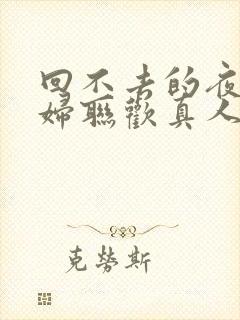 回不去的夜
婦聯歡真人
克勞斯